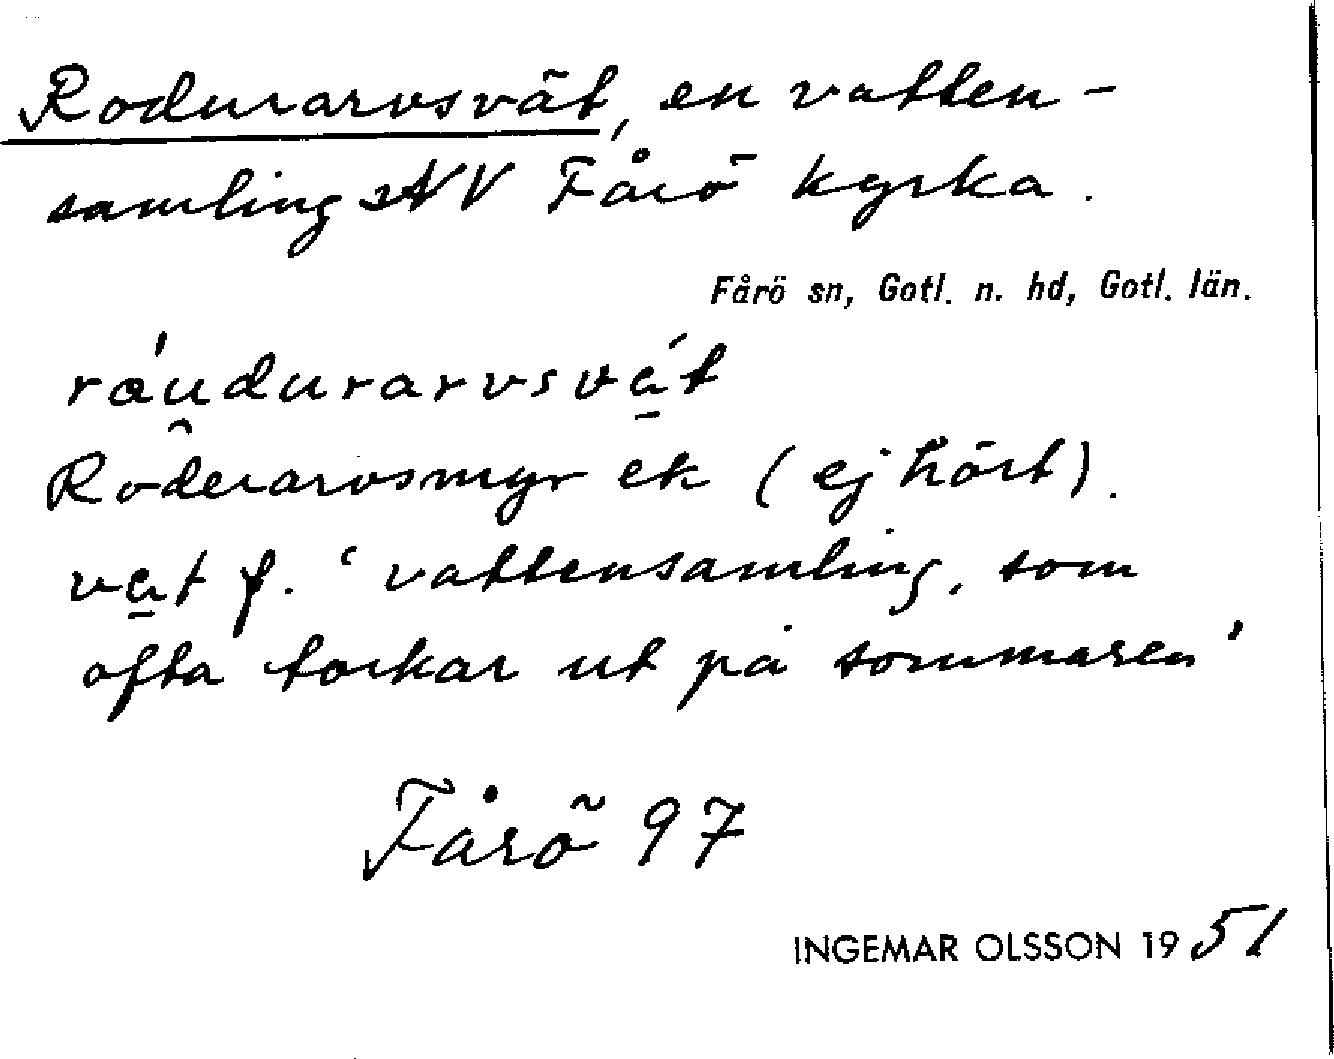 Rodurarvsvät, en vatten-
samling NV Fårö kyrka.
Fårö sn, Gotl. n. hd, Gotl. län.
ráu̯durarvsvá̱t
Roderarvsmyr ek (ej hört).
va̱t f. ‘vattensamling, som
ofta torkar ut på sommaren’
Fårö 97
INGEMAR OLSSON 1951